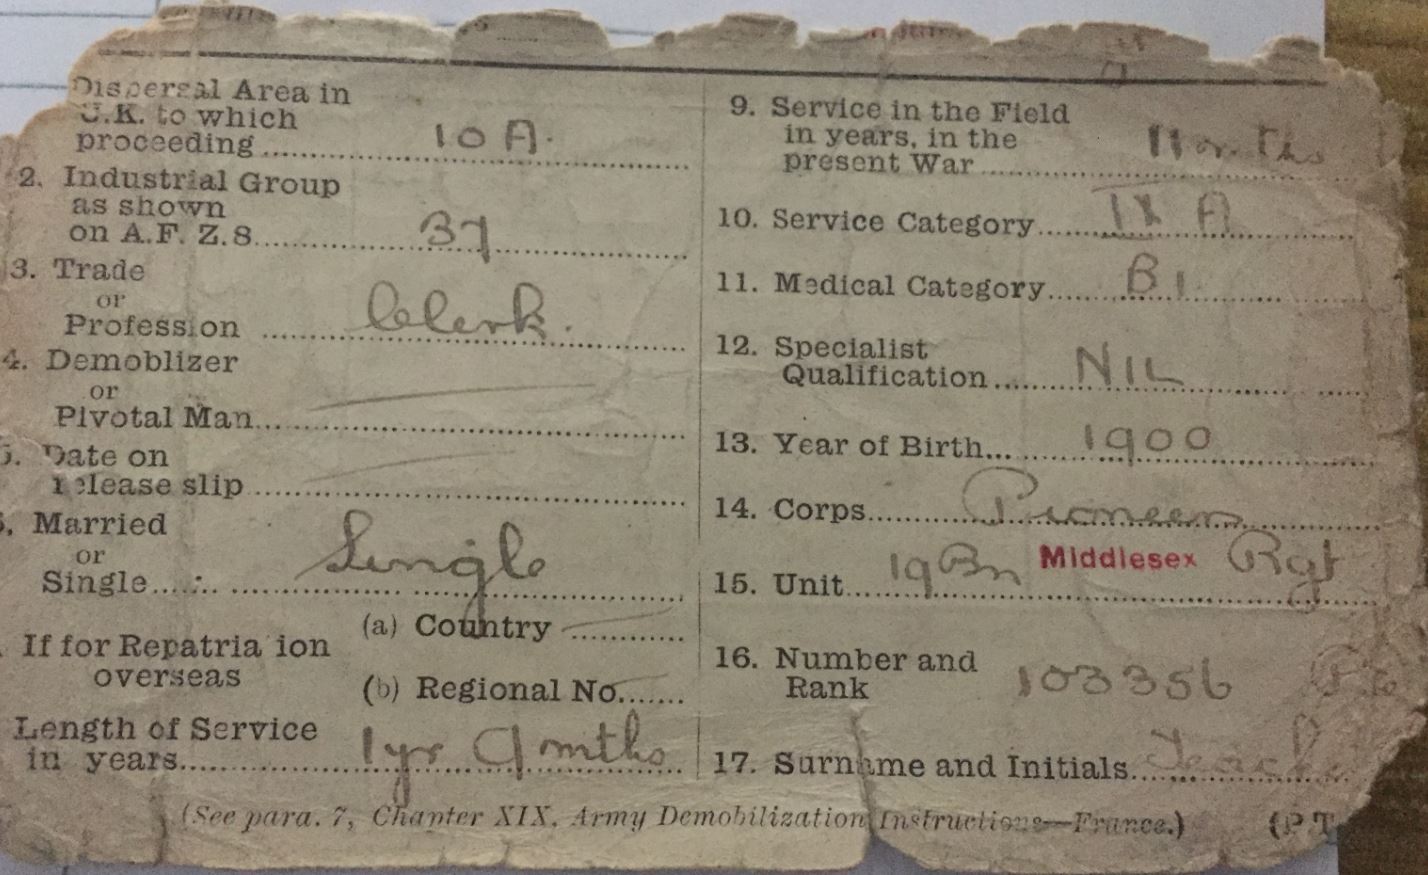 Dispersal Area in
U.K. to which
proceeding.......... 10 A.
2. Industrial Group
as shown
on A.F. Z.8.......... 37
3. Trade
or
Profession .......... Clerk.
4. Demoblizer
or
Pivotal Man..........
5. Date on
release slip..........
6. Married
or
Single.......... Single
If for Repatria ion
overseas
(a) Country ..........
(b) Regional No.......
Length of Service
in years.......... 1yr 9 mths
9. Service in the Field
in years, in the
present War..........
10. Service Category.......... IX A
11. Medical Category.......... B1
12. Specialist
Qualification.......... NIL
13. Year of Birth.......... 1900
14. Corps.......... Pioneers
15. Unit.......... 19 Bn Middlesex Rgt
16. Number and
Rank 103356
17. Surname and Initials..........
(See para. 7, Chapter XIX. Army Demobilization Instructions—France.) (P.T